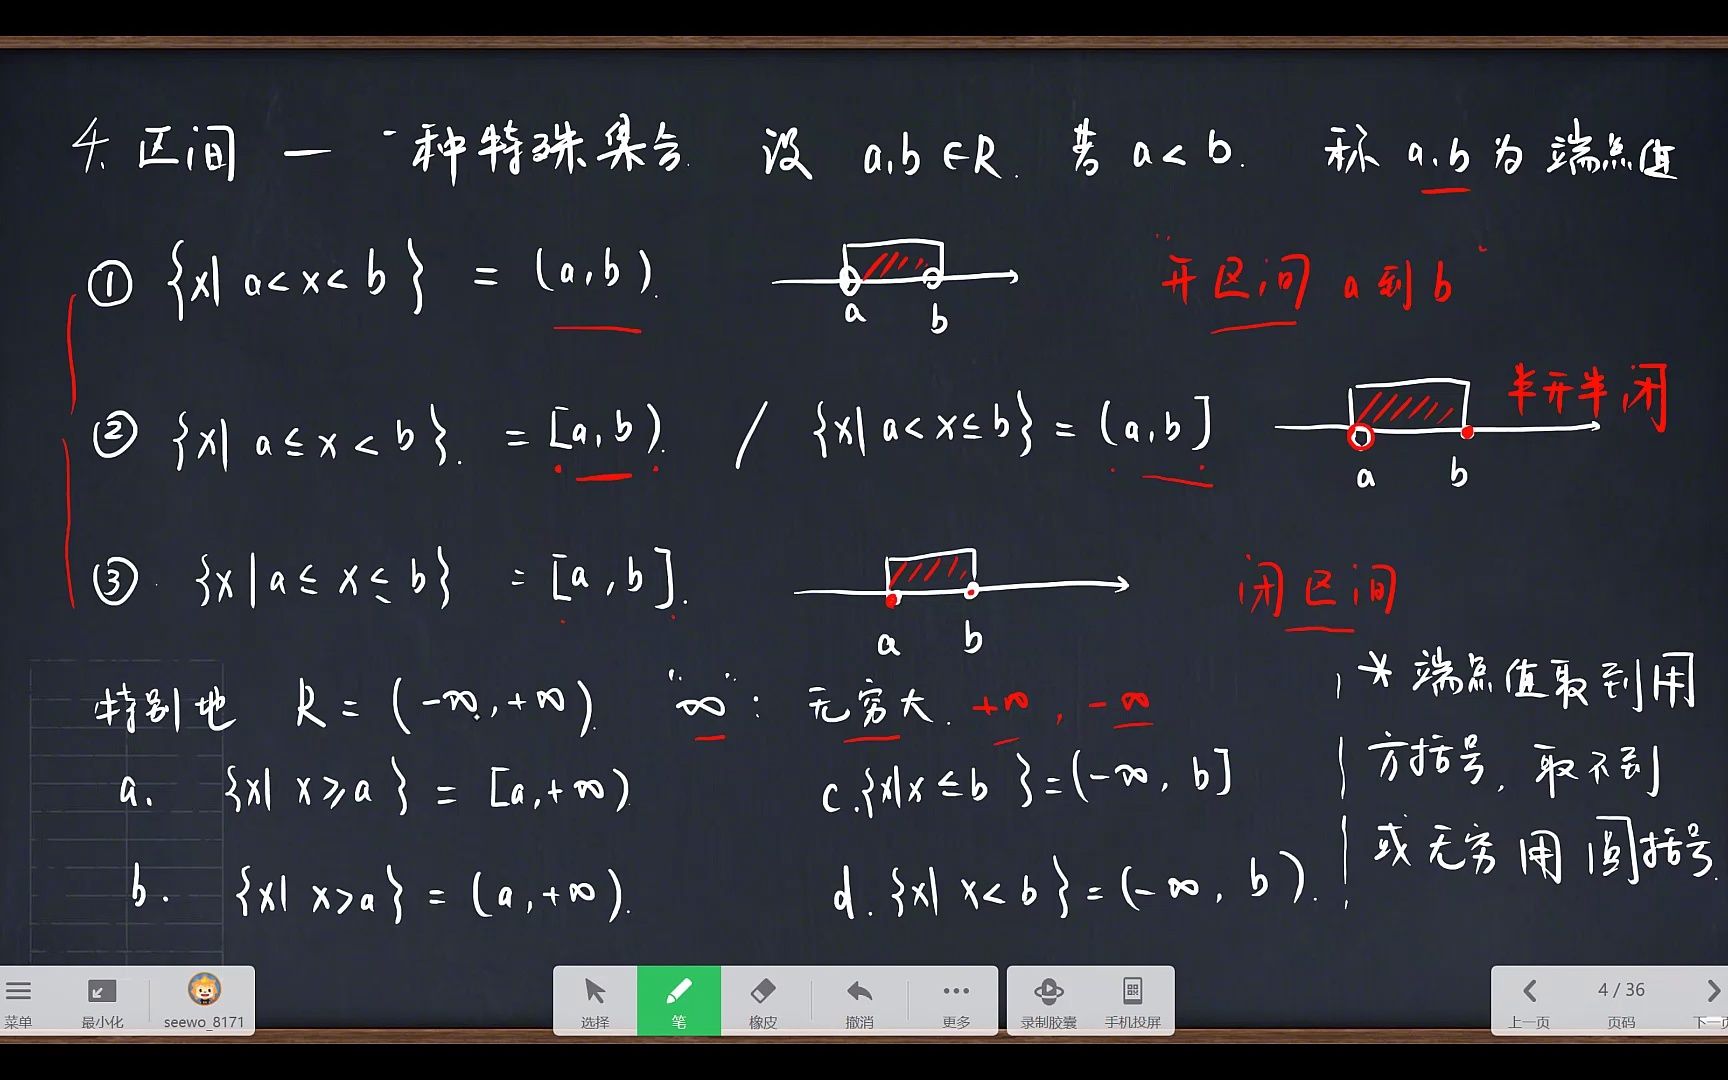 4. 区间 — 一种特殊集合. 设 a,b∈R. 若 a<b. 称 a.b 为 端点值
① {x| a<x<b} = (a,b). a b “开区间 a到b”
② {x| a≤x<b}. = [a,b). / {x| a<x≤b} = (a,b] a b 半开半闭
③. {x|a≤x≤b} = [a,b]. a b 闭区间
特别地 R = (-∞,+∞). “∞”: 无穷大. +∞, -∞
* 端点值取到用
方括号, 取不到
或无穷用圆括号.
a. {x| x≥a} = [a,+∞) c.{x|x≤b}=(-∞, b]
b. {x| x>a} = (a,+∞). d. {x| x<b}=(-∞, b).
菜单 最小化 seewo_8171 选择 笔 橡皮 撤消 更多 录制胶囊 手机投屏 上一页 4 / 36 页码 下一页